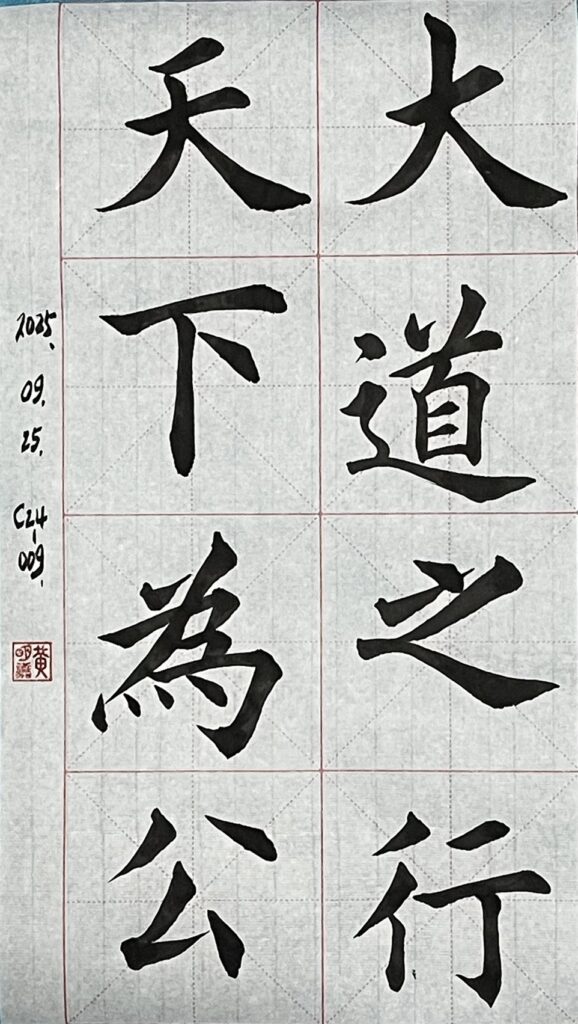 大道之行
天下為公
2025.09.25. C24-009.